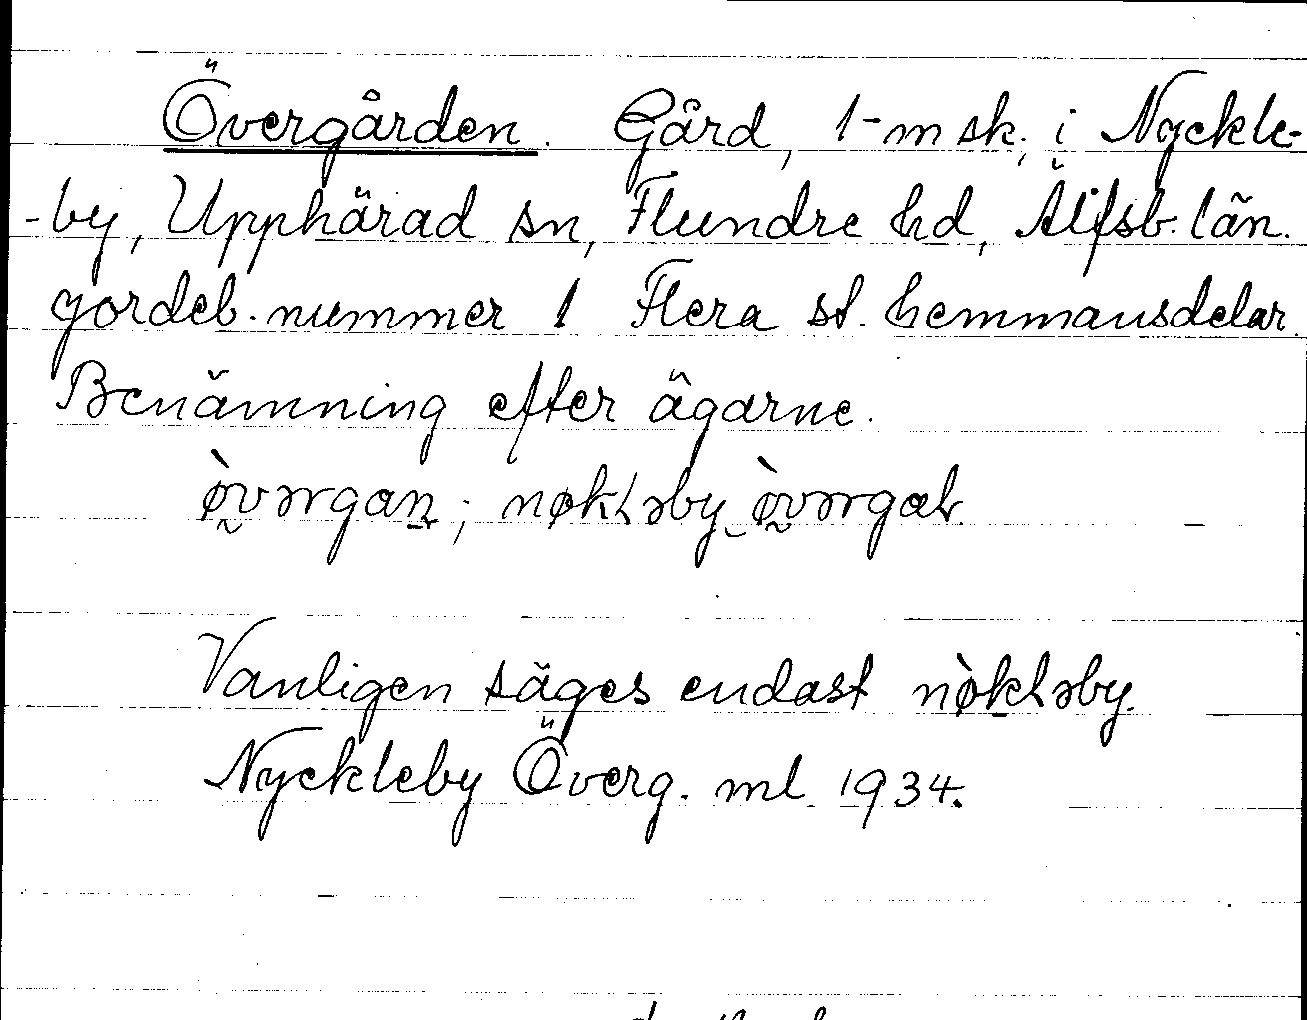 Övergården. Gård, 1-m sk; i Nyckle-
-by, Upphärad sn, Flundre hd, Älfsb. län.
gordeb. nummer 1 Flera st. hemmansdelar.
Benämning efter ägarne.
ø̀vərgaṉ; nøkɫəby ø̀vərgaɫ.
Vanligen säges endast nø̀kɫəby.
Nyckleby Överg. ml. 1934.